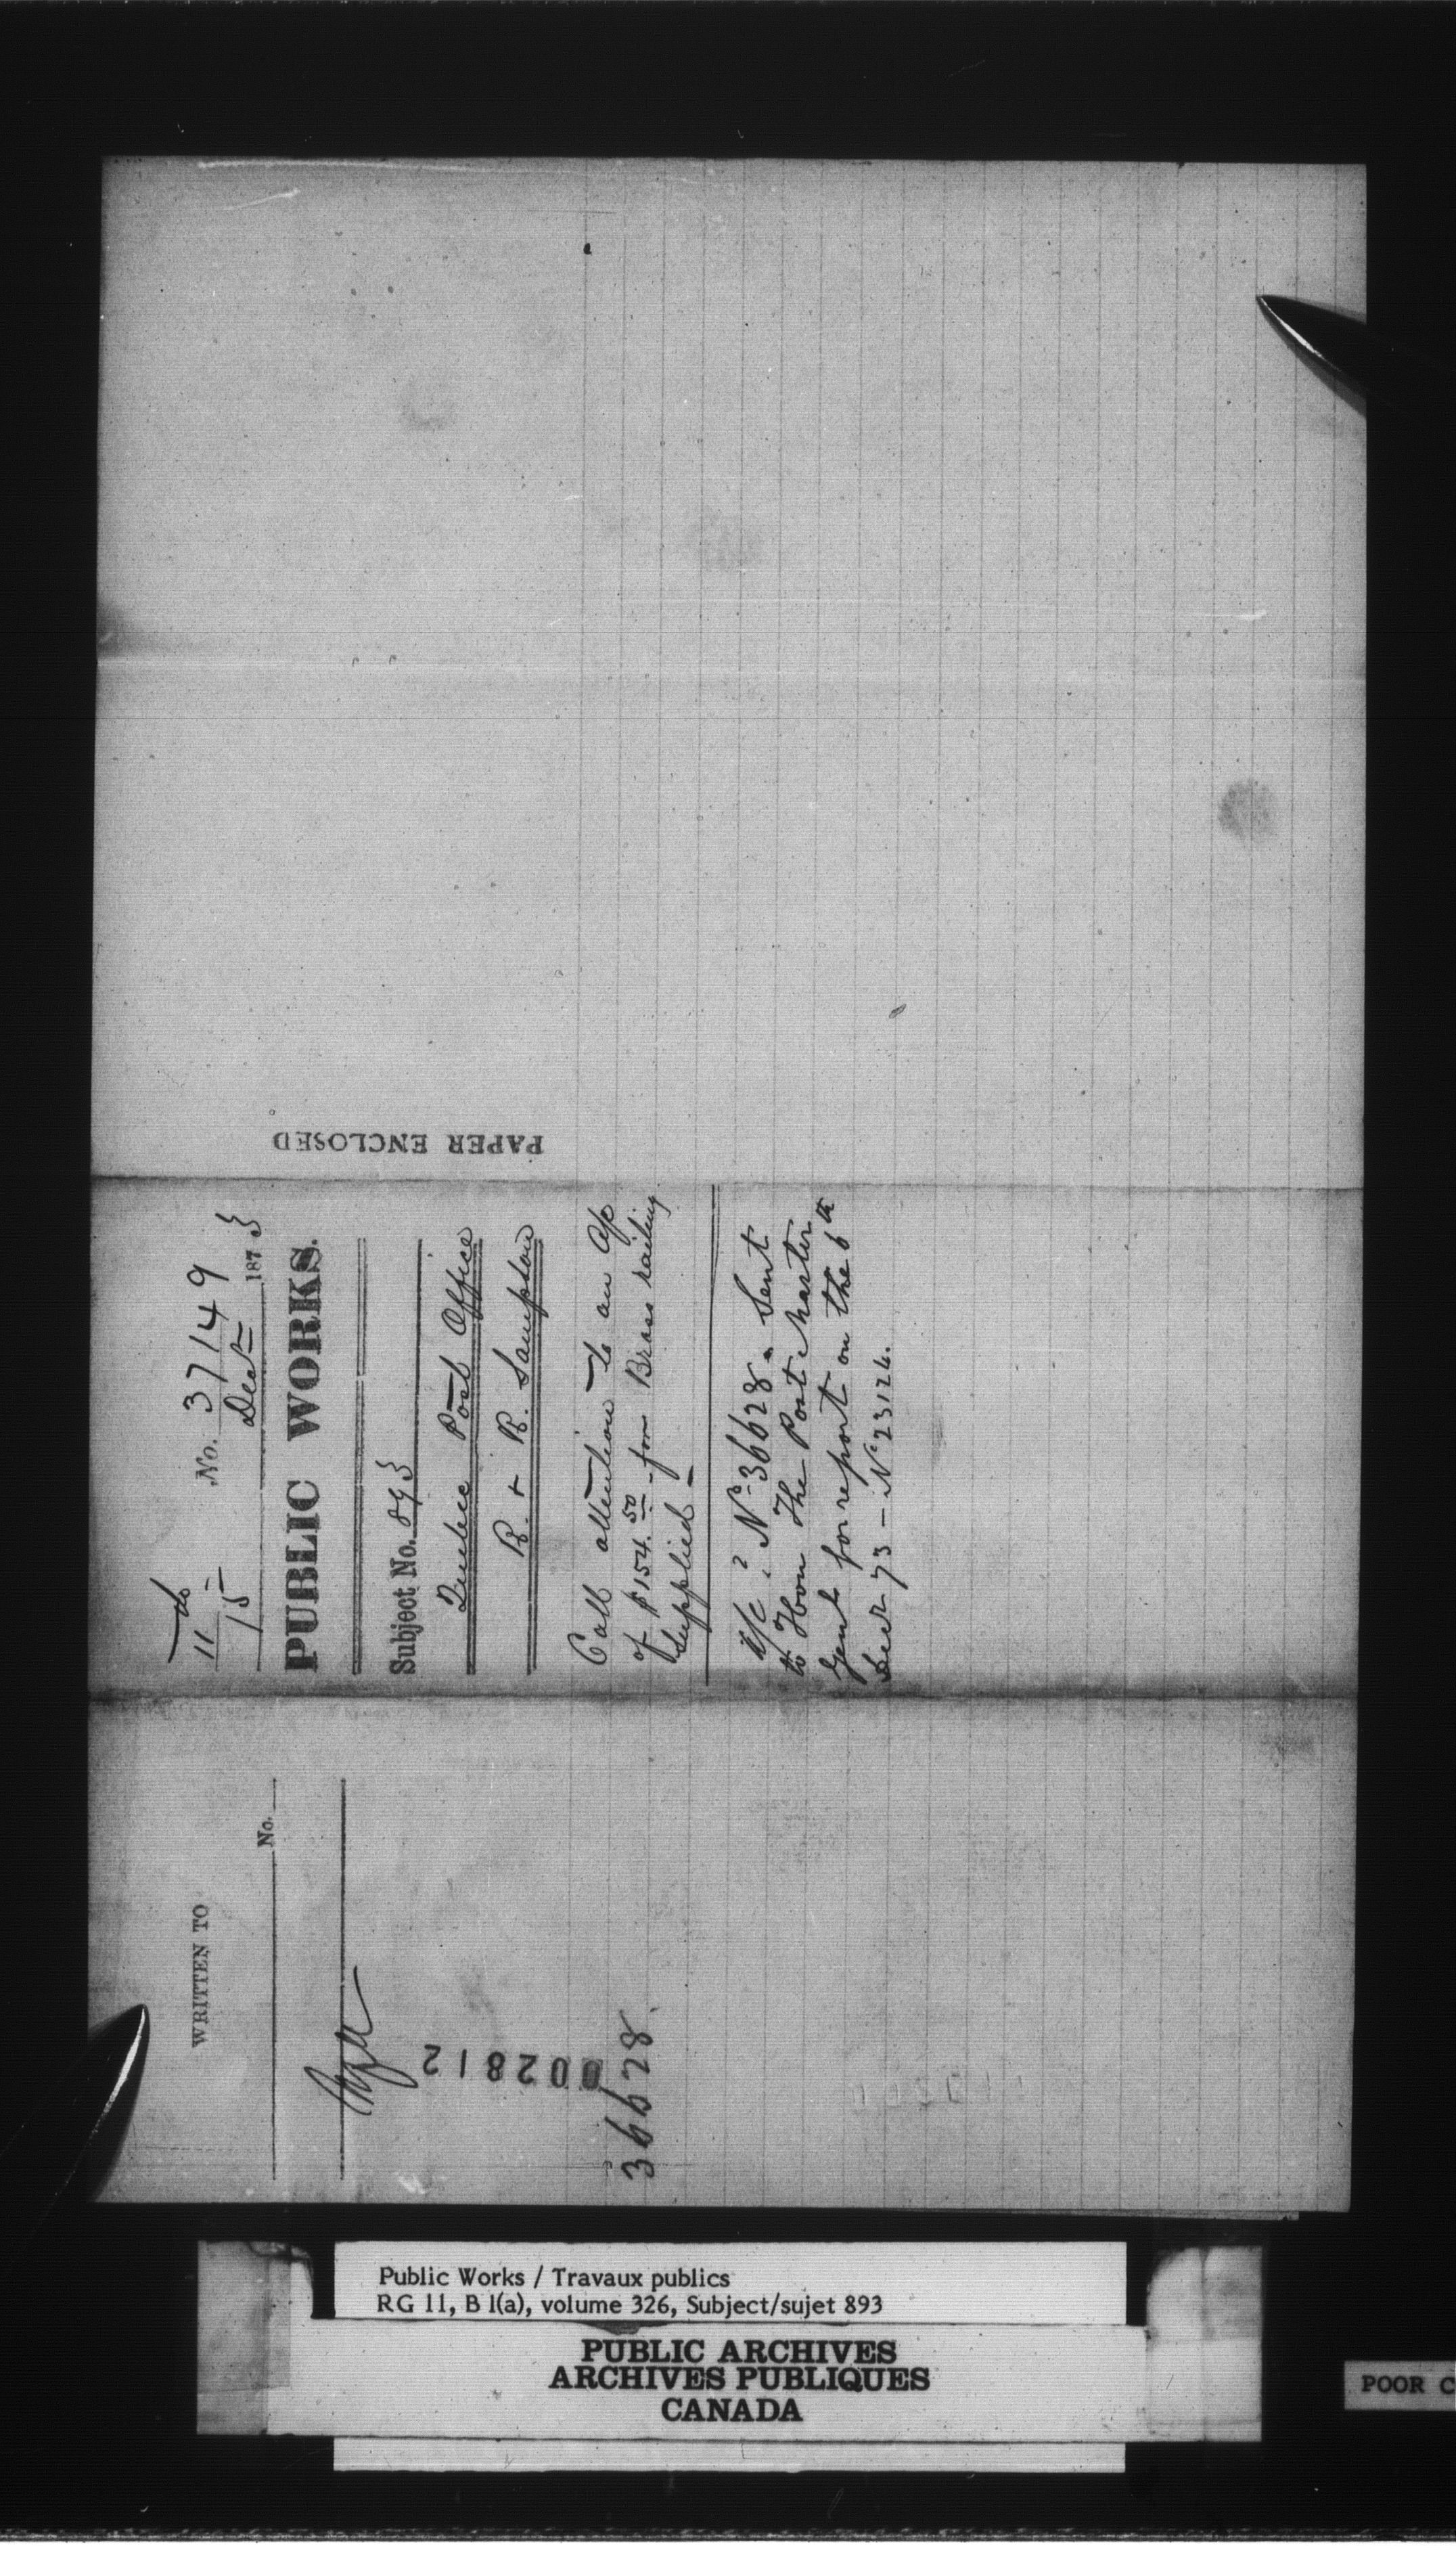 11
15
No. 37149
Decr 1873
PUBLIC WORKS.
Subject No. 893
Quebec Post Office
R. + R. Sampson
Call attention to an a/c
of $154.50 for Brass railing
supplied -
N° 36628. Sent
to Hon The Post Master
Genl for report on the 6th
73 - N° 23124.
PAPER ENCLOSED
WRITTEN TO
No.
002812
36628
Public Works / Travaux publics
RG 11, B 1(a), volume 326, Subject/sujet 893
PUBLIC ARCHIVES
ARCHIVES PUBLIQUES
CANADA
POOR C